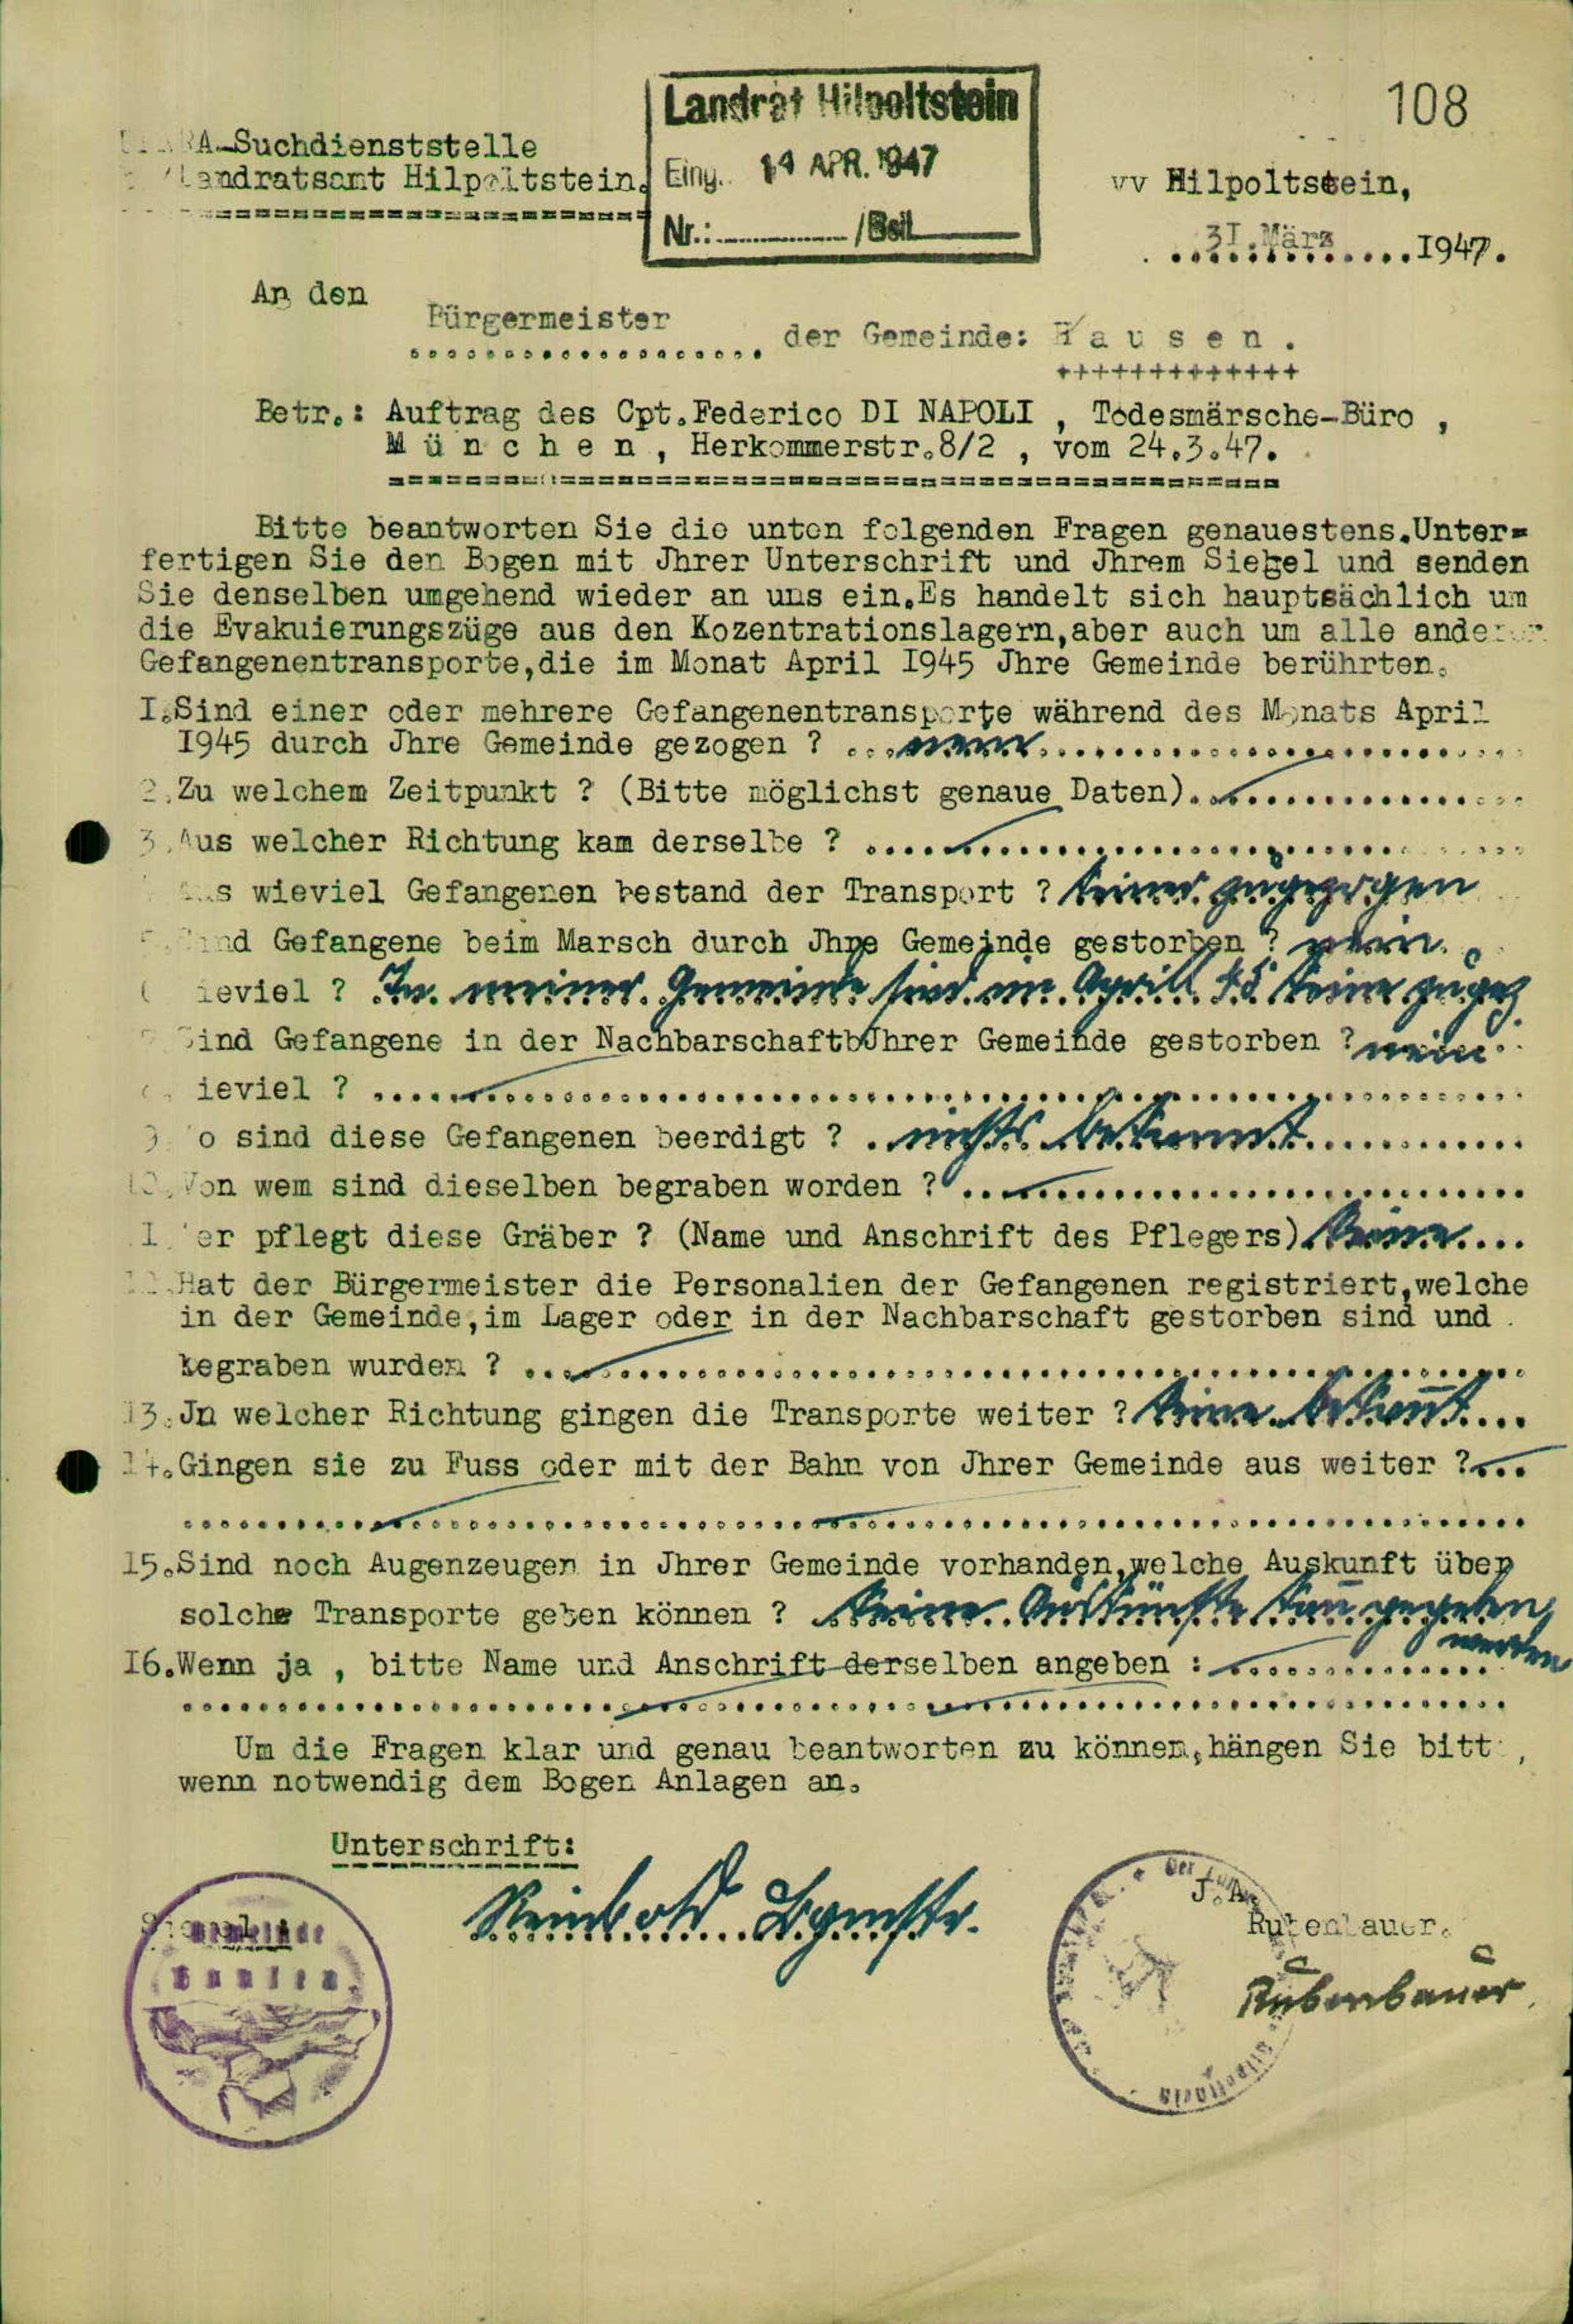 108
Landrat Hilpoltstein
Eing. 14 APR. 1947
Nr.: /Beil
A-Suchdienststelle
Landratsamt Hilpoltstein.
vv Hilpoltstein,
3I.März 1947.
An den
Bürgermeister der Gemeinde: H a u s e n .
+++++++++++++
Betr.: Auftrag des Cpt.Federico DI NAPOLI , Todesmärsche-Büro ,
M ü n c h e n , Herkommerstr.8/2 , vom 24.3.47.
Bitte beantworten Sie die unten folgenden Fragen genauestens.Unter=
fertigen Sie den Bogen mit Jhrer Unterschrift und Jhrem Siegel und senden
Sie denselben umgehend wieder an uns ein.Es handelt sich hauptsächlich um
die Evakuierungszüge aus den Kozentrationslagern,aber auch um alle
Gefangenentransporte,die im Monat April I945 Jhre Gemeinde berührten.
I.Sind einer oder mehrere Gefangenentransporte während des Monats April
I945 durch Jhre Gemeinde gezogen ? ...nein...
2.Zu welchem Zeitpunkt ? (Bitte möglichst genaue Daten)...
3.Aus welcher Richtung kam derselbe ? ...
wieviel Gefangenen bestand der Transport ? keiner zugezogen
Gefangene beim Marsch durch Jhre Gemeinde gestorben ? nein.
ieviel ? In meiner Gemeinde sind im April 45 keine zugez
Sind Gefangene in der NachbarschaftbJhrer Gemeinde gestorben ? nein.
ieviel ? ...
9 o sind diese Gefangenen beerdigt ? . nichts bekannt...
10.Von wem sind dieselben begraben worden ? ...
I er pflegt diese Gräber ? (Name und Anschrift des Pflegers).keine....
Hat der Bürgermeister die Personalien der Gefangenen registriert,welche
in der Gemeinde,im Lager oder in der Nachbarschaft gestorben sind und .
begraben wurden ? ...
13.Jn welcher Richtung gingen die Transporte weiter ? keine bekannt...
14.Gingen sie zu Fuss oder mit der Bahn von Jhrer Gemeinde aus weiter ?...
15.Sind noch Augenzeugen in Jhrer Gemeinde vorhanden,welche Auskunft über
solche Transporte geben können ? keine Auskünfte kann gegeben
werden
I6.Wenn ja , bitte Name und Anschrift derselben angeben : ...
Um die Fragen klar und genau beantworten zu können,hängen Sie bitt ,
wenn notwendig dem Bogen Anlagen an.
Unterschrift:
Gemeinde
Hausen
Reinbold Bgmstr.
J.A.
Rubenbauer.
Rubenbauer
Hilpoltstein